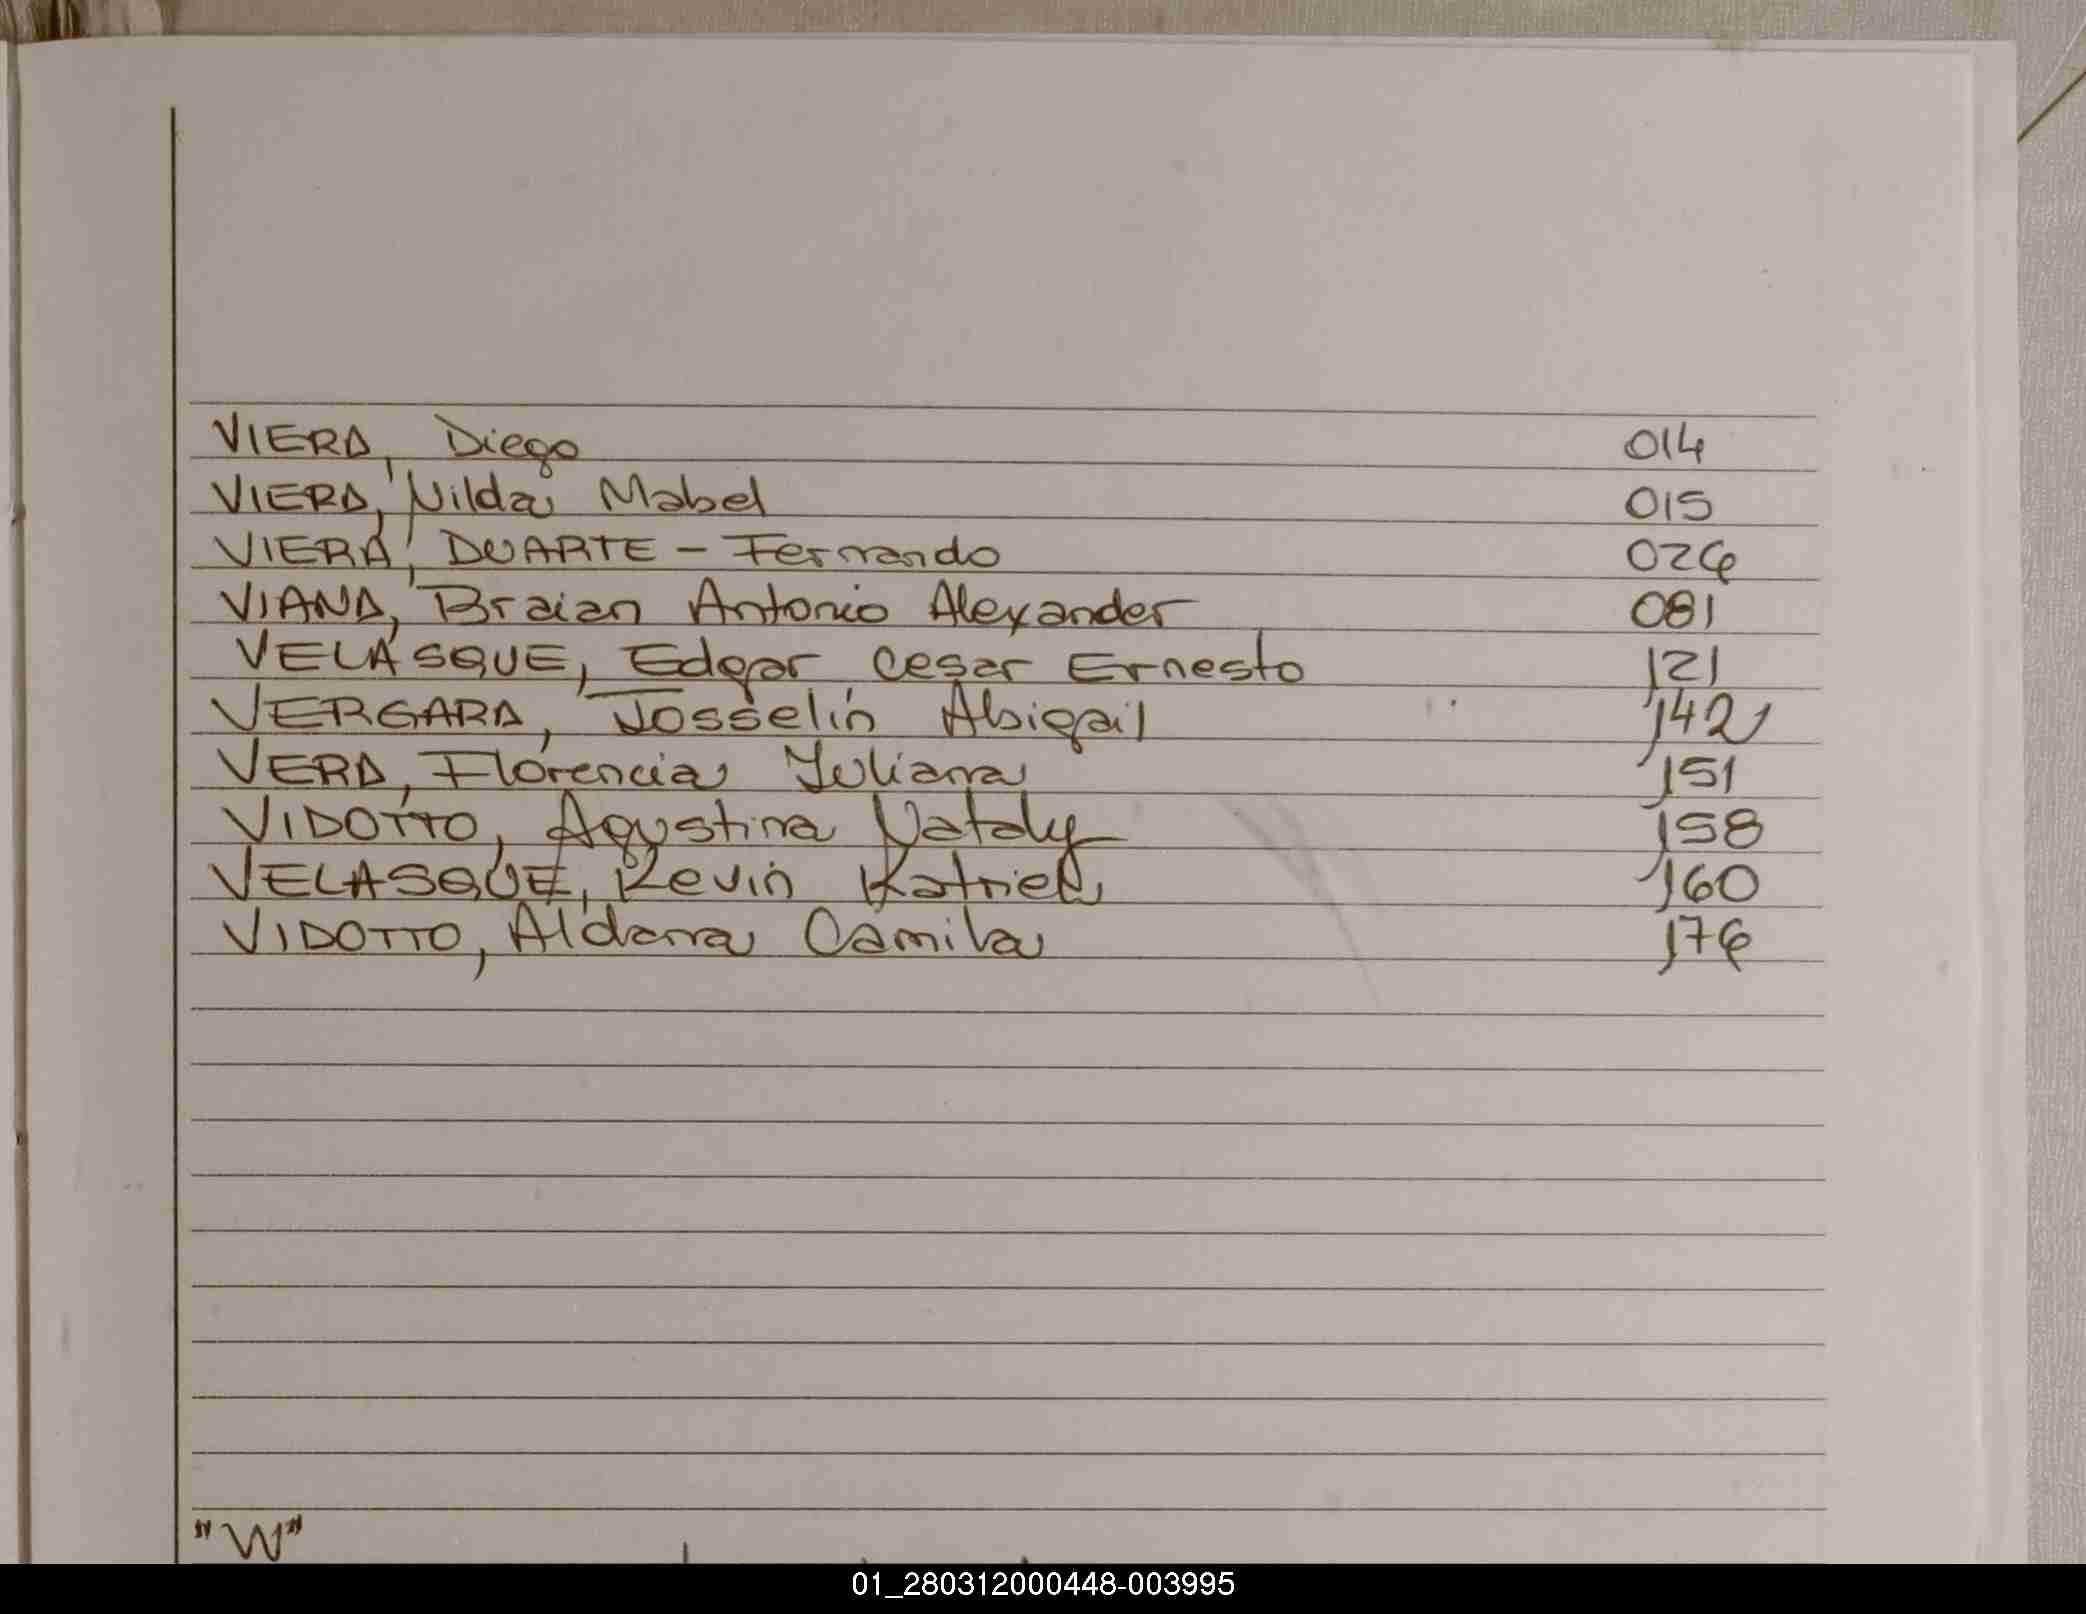 VIERA, Diego 014
VIERA, Nilda Mabel 015
VIERA, DUARTE - Fernando 026
VIANA, Braian Antonio Alexander 081
VELASQUE, Edgar Cesar Ernesto 121
VERGARA, Josselin Abigail 142
VERA, Florencia Yuliana 151
VIDOTTO, Agustina Nataly 158
VELASQUE, Kevin Katriel 160
VIDOTTO, Aldana Camila 176
"W"
01_280312000448-003995